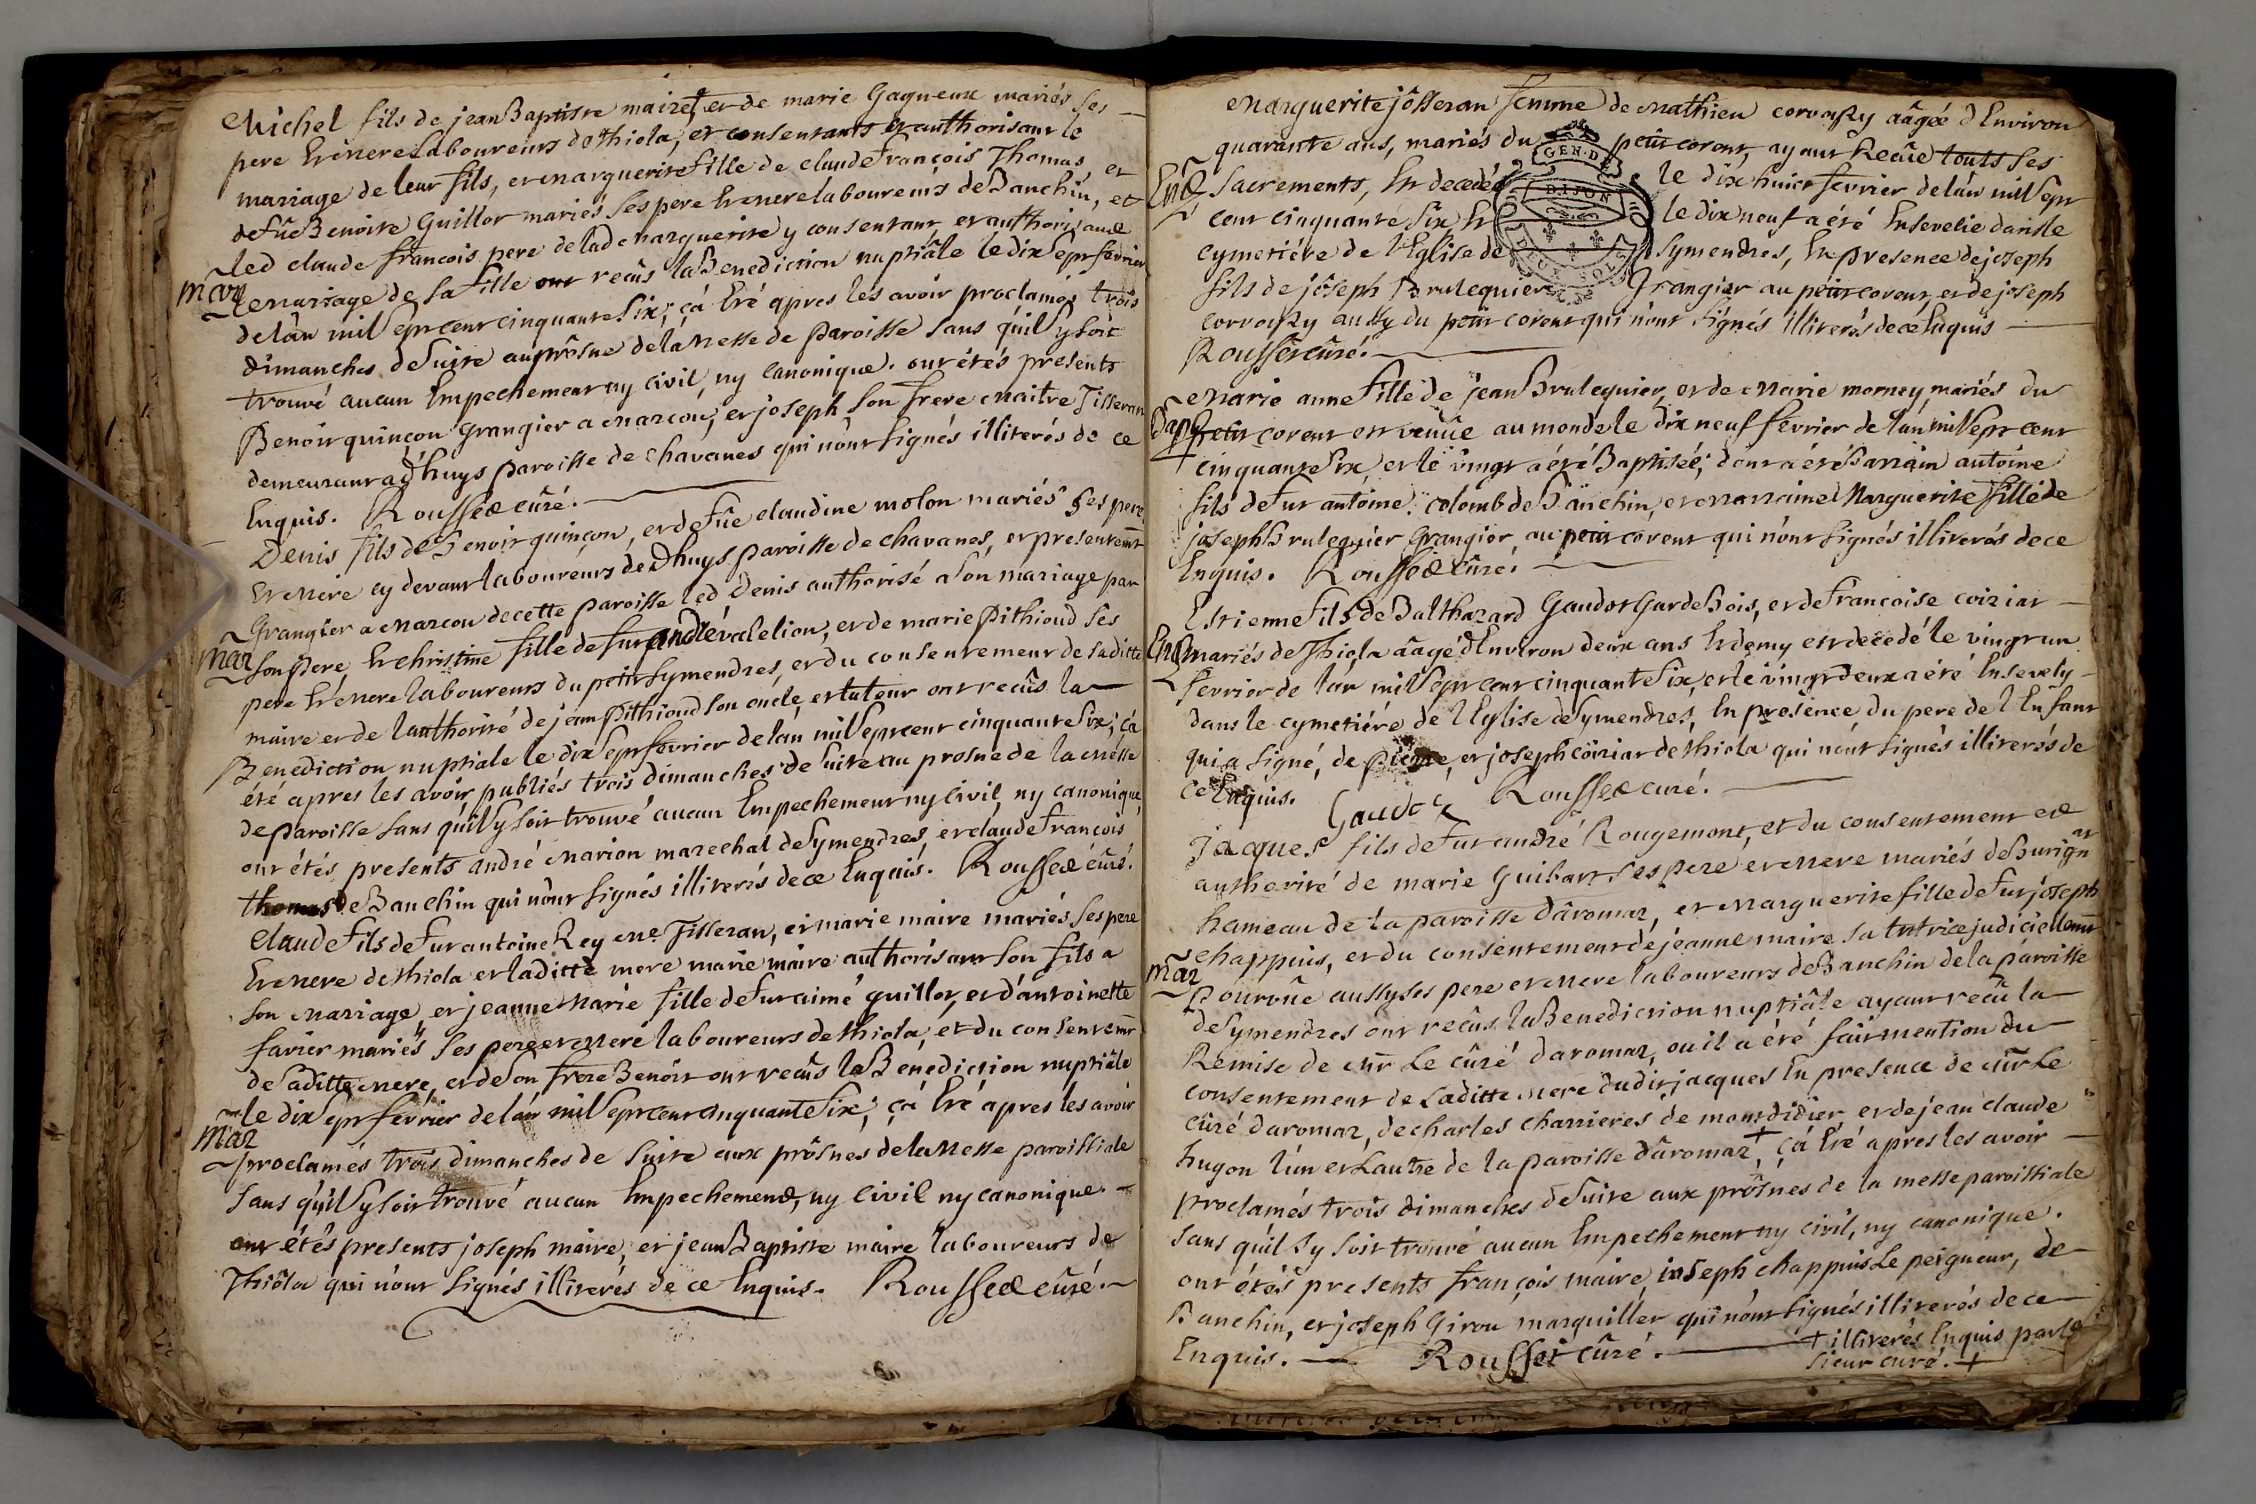 Michel fils de jean Baptiste maire et de marie Gagneux mariés ses
pere Et mere Laboureurs de thiola, et consentants et authorisant le
mariage de leur fils, et marguerite fille de claude François Thomas et
de fûe Benoite Guillot mariés ses pere Et mere laboureurs de Banchin, et
led claude francois pere de lad marguerite y consentant et authorisant
mar
le mariage de sa fille ont recûs la Benediction nuptiâle le dix sept fevrier
de lân mil sept cent cinquante six; çà Eté apres les avoir proclamés trois
dimanches de suite au prôsne de la Messe de paroisse sans qu'il sy soit
trouvé aucun Empechement ny civil, ny canonique. ont étés presents
Benoit quinçon grangier a marcou, et joseph son frere maitre Tisseran
demeurant a Dhuys paroisse de chavanes qui n'ont signés illiterés de ce
Enquis. Rousset curé.
Denis fils de Benoit quinçon, et de fûe claudine molon mariés ses pere
Et mere cy devant laboureurs de Dhuys paroisse de chavanes, et presentemt
Grangier a marcou de cette paroisse led Denis authorisé a son mariage par
mar
son pere Et christine fille de fut André valelion, et de marie Pithioud ses
pere Et mere laboureurs du petit Symendres, et du consentement de saditte
maire et de lauthorité de jean Pithioud son oncle, et tuteur ont recûs la
Benediction nuptiale le dix sept fevrier de lân mil sept cent cinquante six; çà
été apres les avoir publiés trois dimanches de suite au prosne de la messe
de paroisse sans qu'il sy soit trouvé aucun Empechement ny civil, ny canonique
ont étés presents andré marion marechal de Symendres, et claude François
thomas de Banchin qui n'ont signés illiterés de ce Enquis. Rousset curé.
Claude fils de fut antoine Rey me. Tisseran, et marie maire mariés ses pere
Et mere de thiola et laditte mere marie maire authorisant son fils a
son mariage, et jeanne Marie fille de fut aimé guillot, et d'antoinette
favier mariés ses pere et mere laboureurs de thiola, et du consentemt
de saditte mere, et de son frere Benoit ont recûs la Benediction nuptiâle
le dix sept février de lân mil sept cent cinquante six; çà Eté apres les avoir
mar
proclamés trois dimanches de suite aux prôsnes de la Messe paroissiale
sans qu'il sy soit trouvé aucun Empechement, ny civil ny canonique.
ont étés presents joseph maire, et jean Baptiste maire laboureurs de
Thiôla qui n'ont signés illiterés de ce Enquis. Rousset curé.
marguerite jôsseran femme de mathieu corvassy aâgée dEnviron
quarante ans, mariés du petit corent, ayant Recûe touts ses
Ent
sacrements, Est decedée le dix huict fevrier de lân mil sept
cent cinquante six, Et le dix neuf a été Ensevelie dans le
cymetiére de lEglise de Symendres, En presence de joseph
fils de jôseph Brulequier Grangier au petit corent, et de joseph
corvassy aussy du petit corent qui n'ont signés illiterés de ce Enquis
Rousset curé.
GEN. DE DIJON
DEUX SOLS
marie anne fille de jean Brulequier, et de marie morney mariés du
Bap
petit corent est venûe au monde le dix neuf fevrier de lân mil sept cent
cinquante six, et le vingt a été Baptisée; dont a été Parrain antoine
fils de fut antoine colomb de Banchin, et marraine Marguerite fille de
joseph Brulequier Grangier, au petit corent qui n'ont signés illiterés de ce
Enquis. Rousset curé.
Estienne fils de Balthazard Gaudet Garde Bois, et de francoise coiziar
Ent
mariés de Thiola aâgé dEnviron deux ans Et demy est decedé le vingt un
fevrier de lan mil sept cent cinquante six, et le vingt deux a été Ensevely
dans le cymetiére de lEglise de Symendres, En presence du pere de lEnfant
qui a signé, de Pierre, et joseph coiziar de thiola qui n'ont signés illiterés de
ce Enquis. Gaudet Rousset curé.
Jacques fils de fut andré Rougemont, et du consentement et
authorité de marie Guibart ses pere et mere mariés de Burignat
hameau de la paroisse dâromaz, et marguerite fille de fut joseph
chappuis, et du consentement de jeanne maire sa tutrice judiciellemt
mar
Pourvûe aussy ses pere et mere laboureurs de Banchin de la paroisse
de Symendres ont recûs la Benediction nuptiâle ayant recû la
Remise de mr Le curé daromaz, ou il a été fait mention du
consentement de laditte mere dudit jacques En presence de mr Le
curé daromaz, de charles charrieres de montdidier, et de jean claude
hugon lun et Lautre de la paroisse dâromaz + çà Eté apres les avoir
proclamés trois dimanches de suite aux prôsnes de la messe paroissiale
sans qu'il sy soit trouvé aucun Empechement ny civil, ny canonique.
ont étés presents françois maire, joseph chappuis Le peigneur, de
Banchin, et joseph Girou marguiller qui n'ont signés illiterés de ce
Enquis. Rousset curé. + illiterés Enquis par le
sieur curé. +